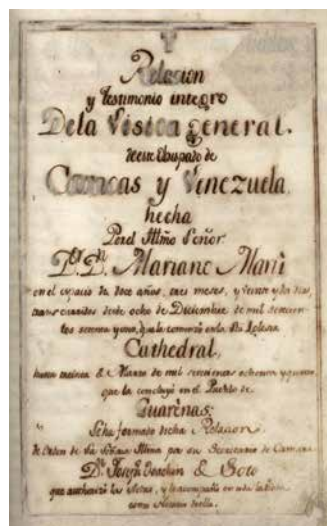 Relacion
y testimonio integro
De la Visita general.
de este Obispado de
Caracas y Venezuela
hecha
Por el Illmo Señor
Dr. Dn. Mariano Martí
en el espacio de doce años, tres meses, y veinte y dos dias,
transcurridos desde ocho de Diciembre de mil setecien-
tos setenta y uno, que la comenzó en la Sta Iglesia
Cathedral,
hasta treinta de Marzo de mil setecientos ochenta y quatro
que la concluyó en el Pueblo de
Guarenas;
Se ha formado dicha Relacion
de Orden de Su Señoria Illma por su Secretario de Camara
Dn. Joseph Joachin de Soto
que authorizó las Actas, y le acompañó en toda la
como Notario de ella.